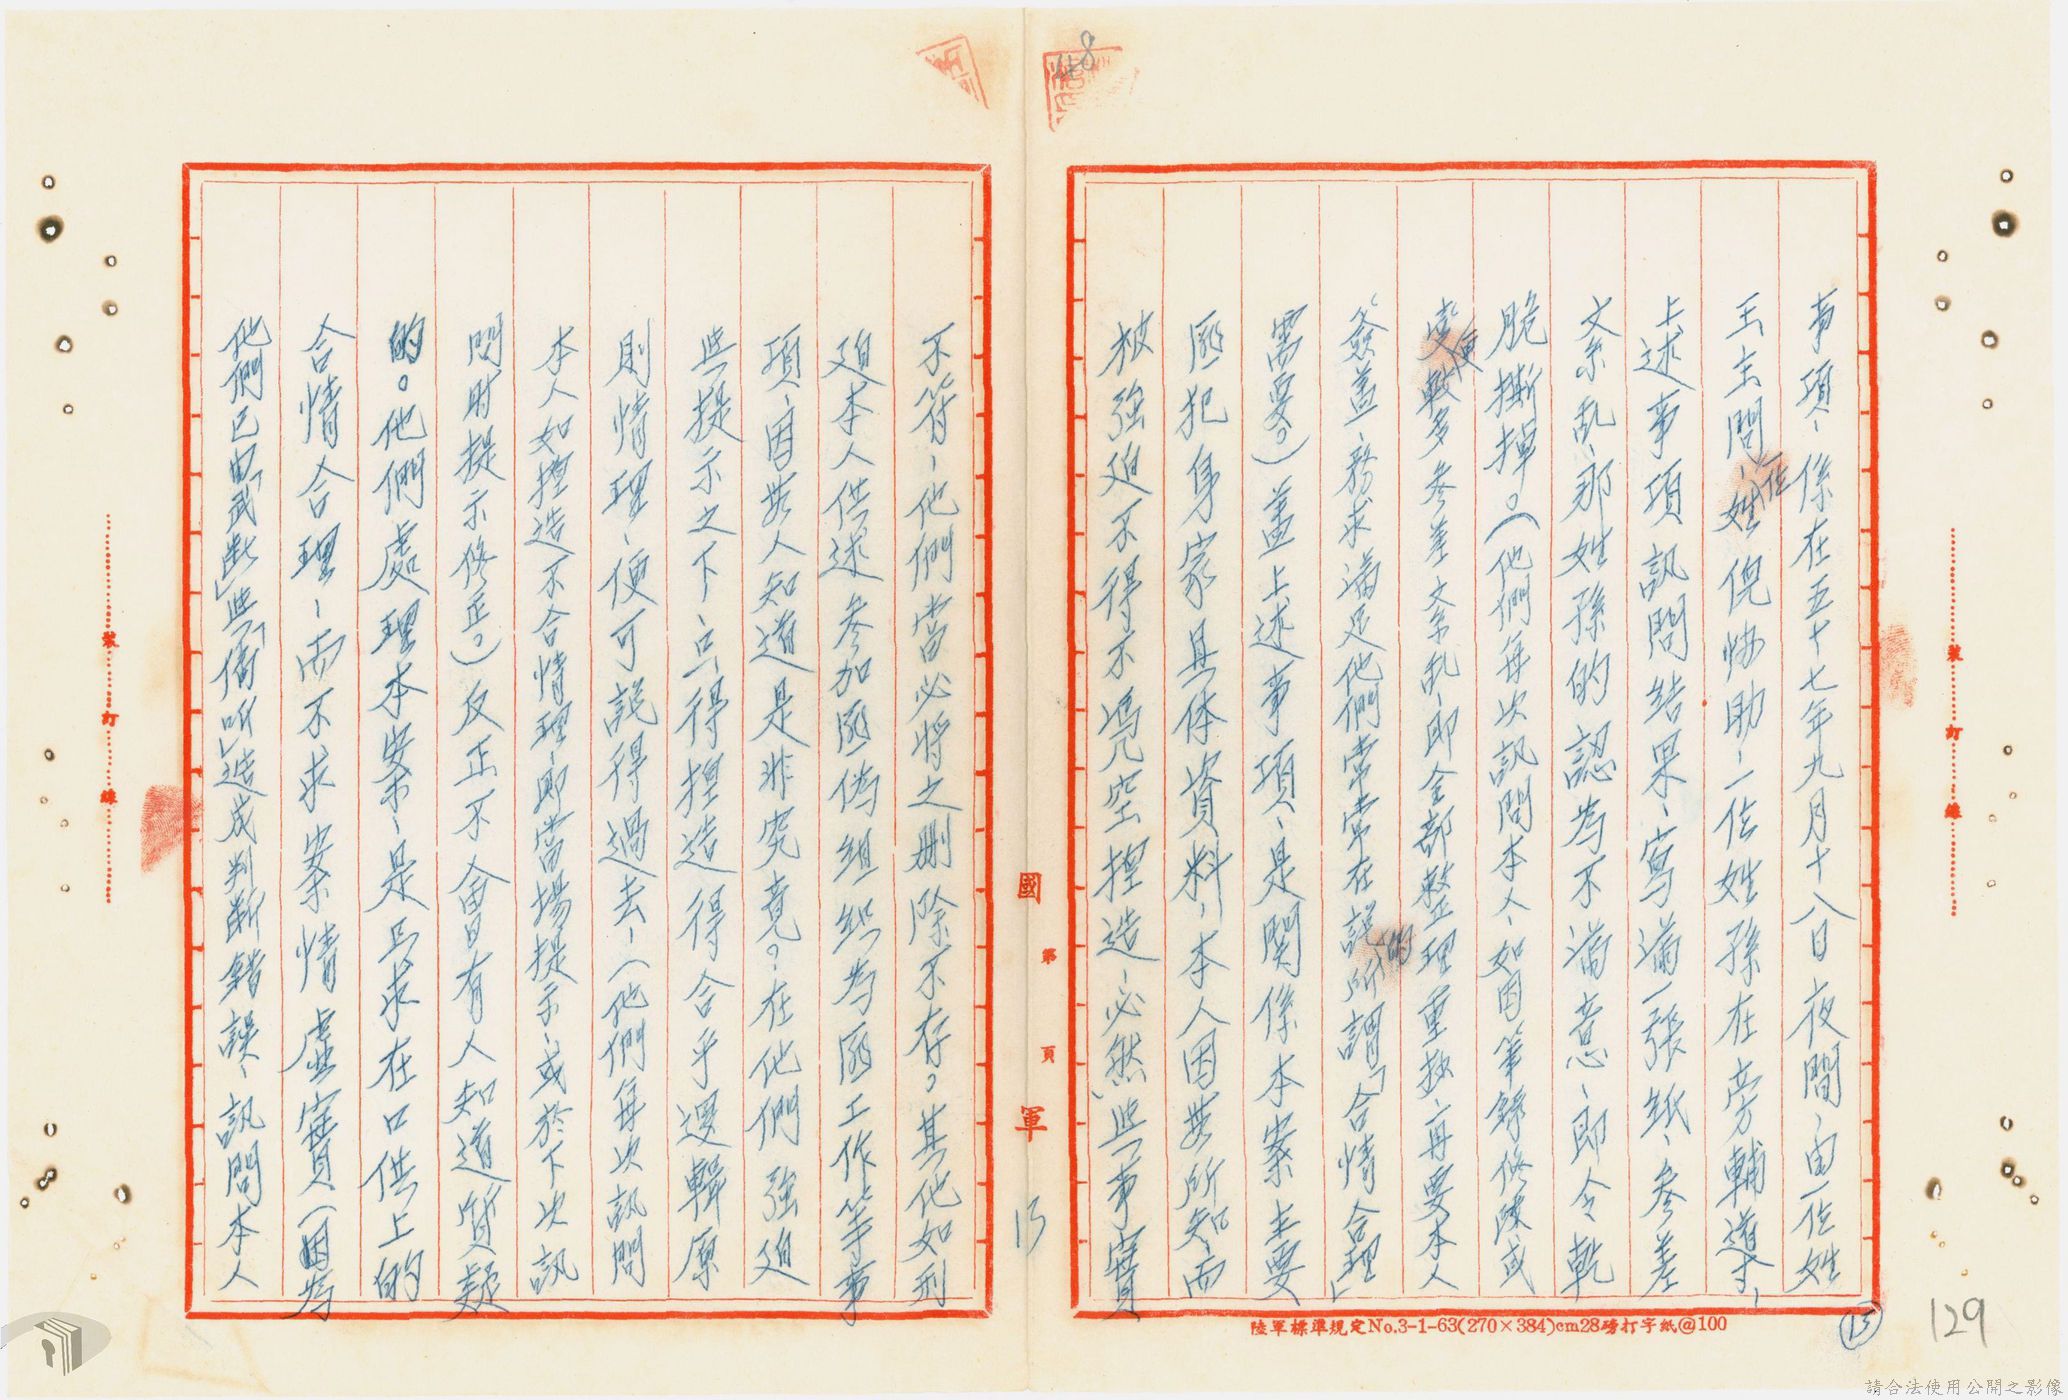 事項、係在五十七年九月十八日夜間、由一位姓
王主問、一位姓倪協助、一位姓孫在旁輔導、
上述事項訊問結果、寫滿一張紙、參差
文紊乱、那姓孫的認為不滿意、即令乾
脆撕掉。(他們每次訊問本人、如因筆錄修陳或
更較多參差文紊乱、即全部整理重抄、再要本人
簽蓋、務求滿足他們常常在說的所謂「合情合理」
需要。)蓋上述事項、是關係本案主要
匪犯身家具体資料、本人因無所知、而
被強迫不得不馮凡空揑造、必然些事實
不符、他們當必將之刪除不存。其他如刑
迫本人供述參加匪偽組織為匪工作等事
項、因無人知道是非究竟。在他們強迫
些提示之下、只得揑造得合乎邏輯原
則情理、便可說得過去、(他們每次訊問
本人如揑造不合情理、即當場提示、或於下次訊
問時提示修正。)反正不會有人知道質疑
的。他們處理本案、是只求在口供上的
合情合理、而不求案情虛實(因為
他們已由「武斷」些「偏听」造成判斷錯誤、訊問本人
國軍
第 頁
13
48
15
129
裝 訂 線
裝 訂 線
陸軍標準規定No.3-1-63(270×384)cm28磅打字紙@100
請合法使用公開之影像